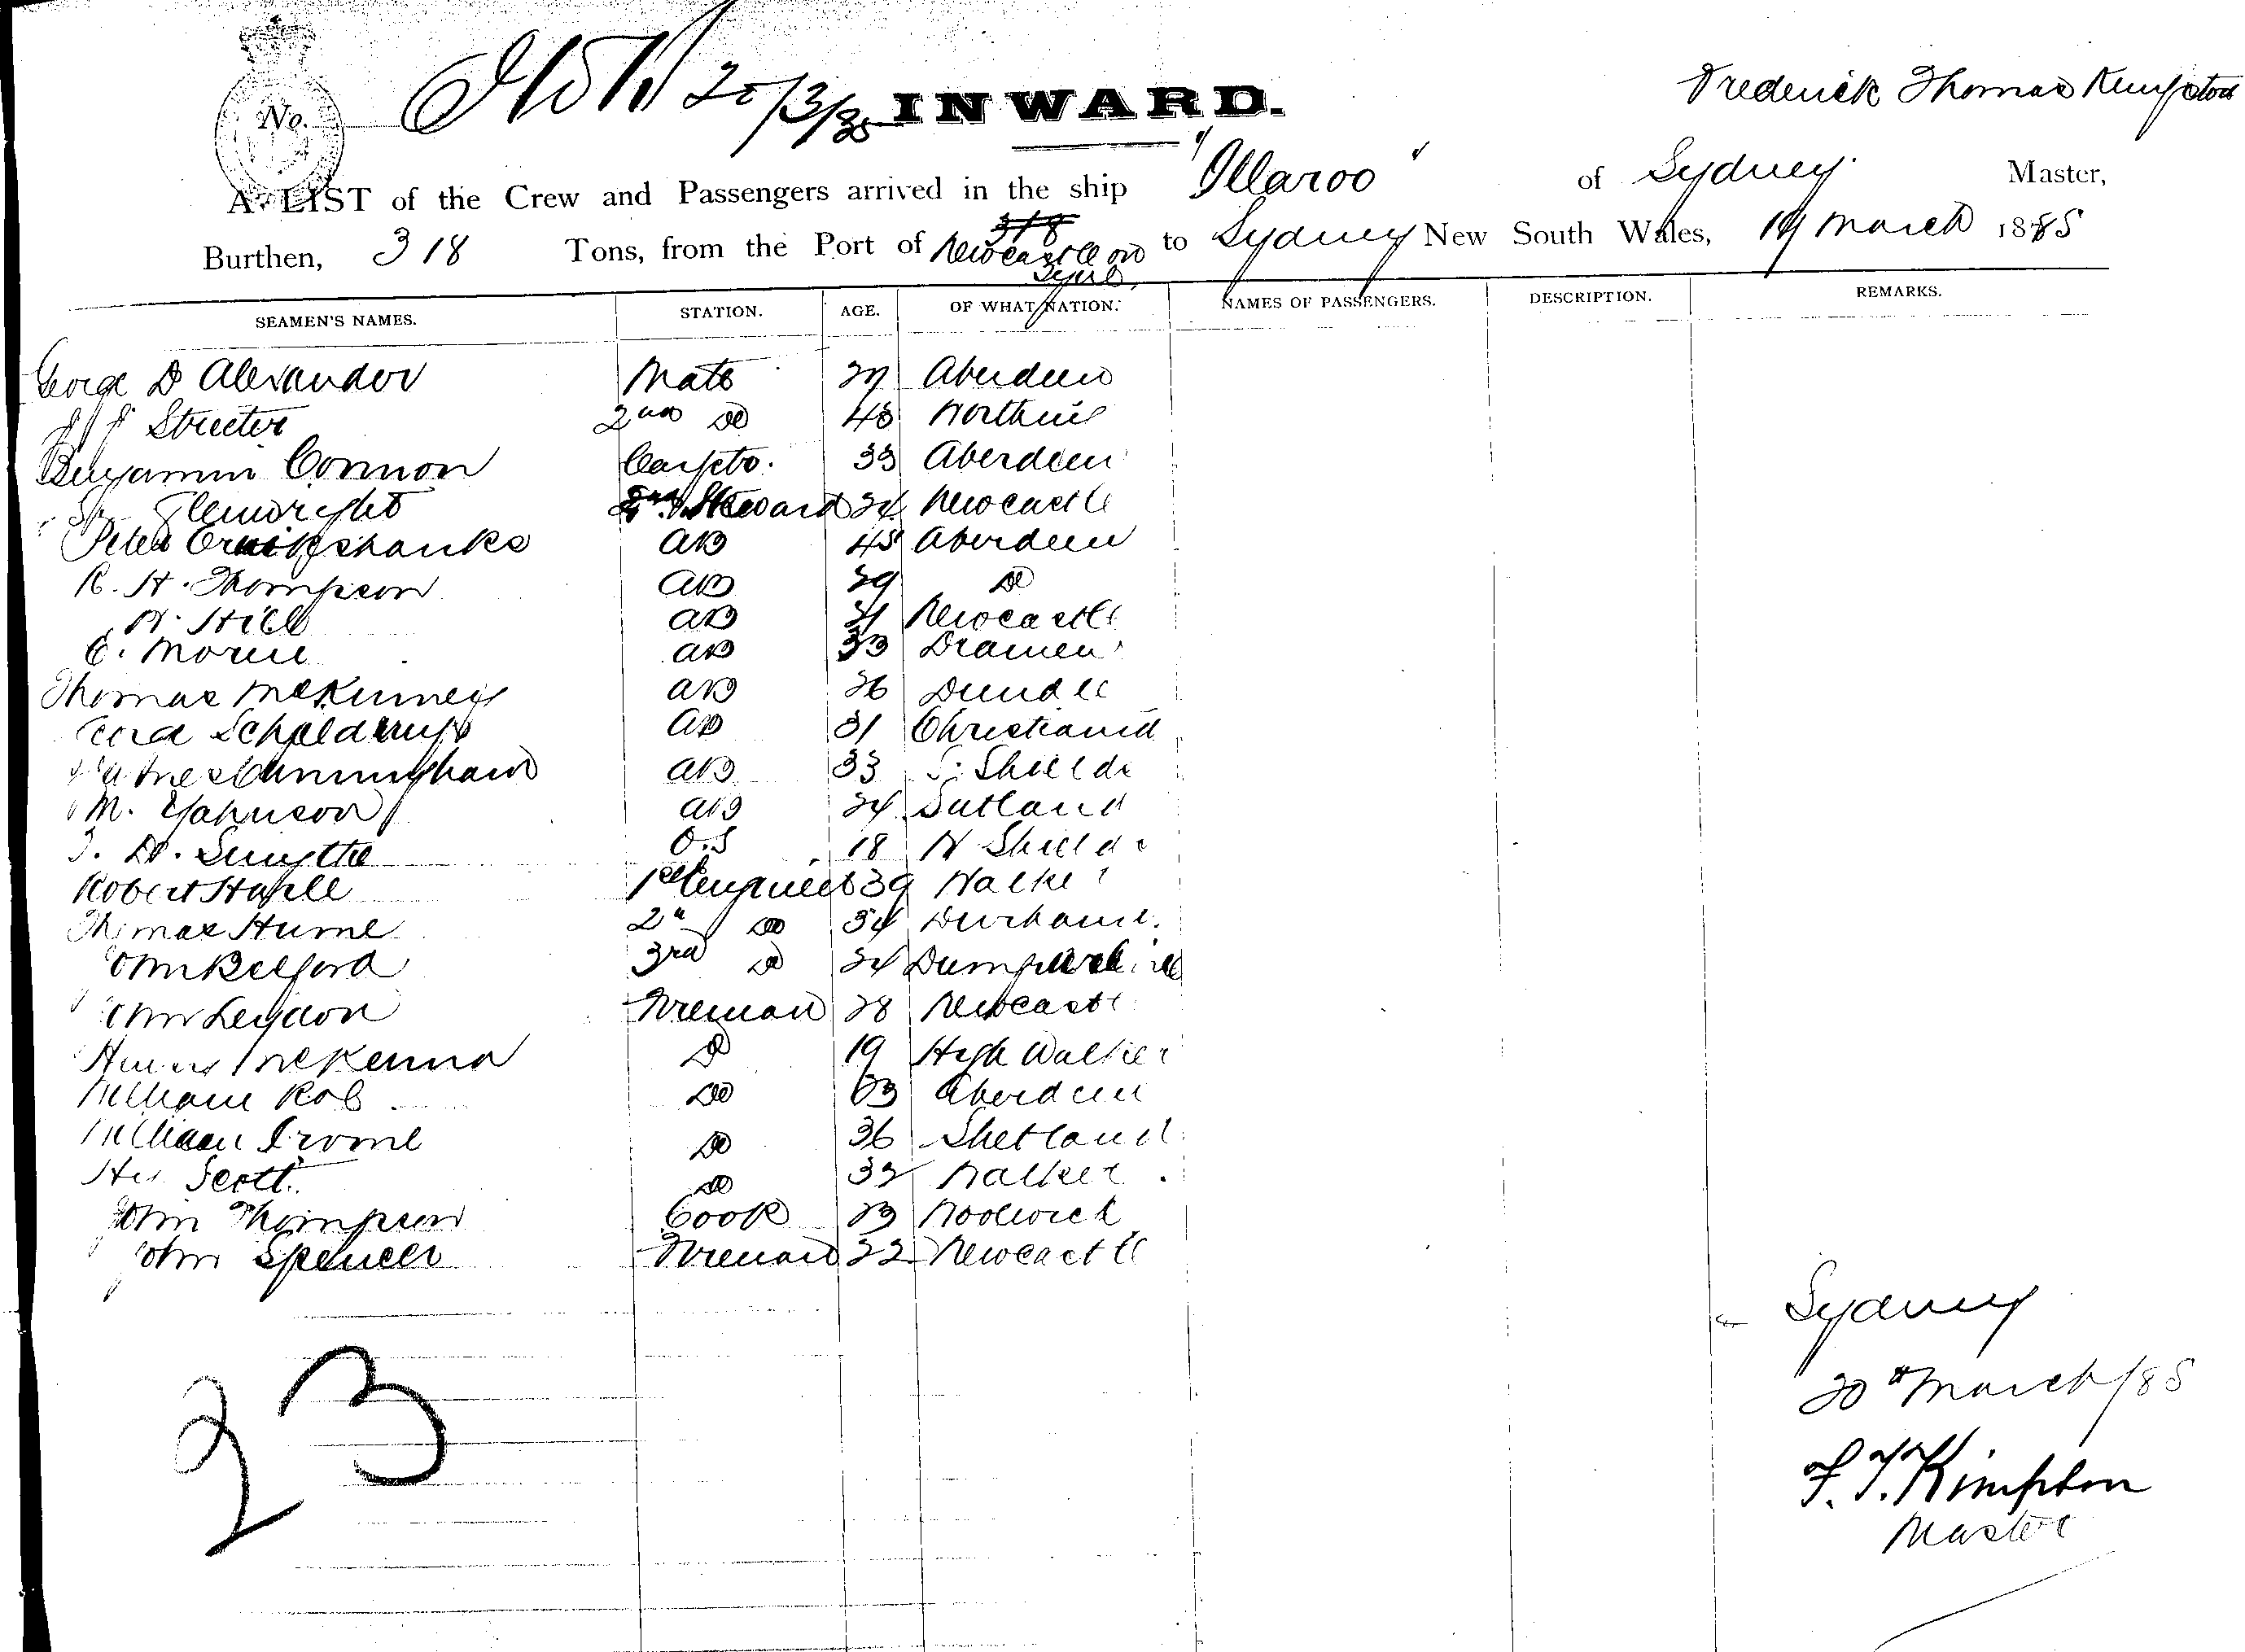 No. 20/3/85 INWARD. Frederick Thomas Kimpton
A LIST of the Crew and Passengers arrived in the ship "Illaroo" of Sydney Master,
318
Burthen, 318 Tons, from the Port of Newcastle on Tyne to Sydney New South Wales, 19 March 1885
SEAMEN'S NAMES. STATION. AGE. OF WHAT NATION. NAMES OF PASSENGERS. DESCRIPTION. REMARKS.
George D Alexander Mate 29 Aberdeen
Streeter 2nd Do 48
Benjamin Connon Carptr. 33 Aberdeen
Glenwright Steward 24 Newcastle
Peter Cruikshanks AB 45 Aberdeen
R. H. Thompson AB 29 Do
Hill AB 31 Newcastle
AB 33 Dramen
Thomas McKinney AB 26 Dundee
AB 31 Christiania
Cunningham AB 33 S. Shields
M. AB 24
Smythe O.S 18 N Shields
Robert 1st Engineer 39 Walker
Thomas Hume 2n Do 34 Durham
John Belford 3rd Do 24
John Leydon Fireman 28 Newcastle
McKenna D 19 High Walker
William Rob Do Aberdeen
William Do 36 Shetland
Scott Do 32 Walker
John Thompson Cook 23 Woolwich
John Spencer Fireman 22 Newcastle
23
Sydney
20th March/85
F. T. Kimpton
Master